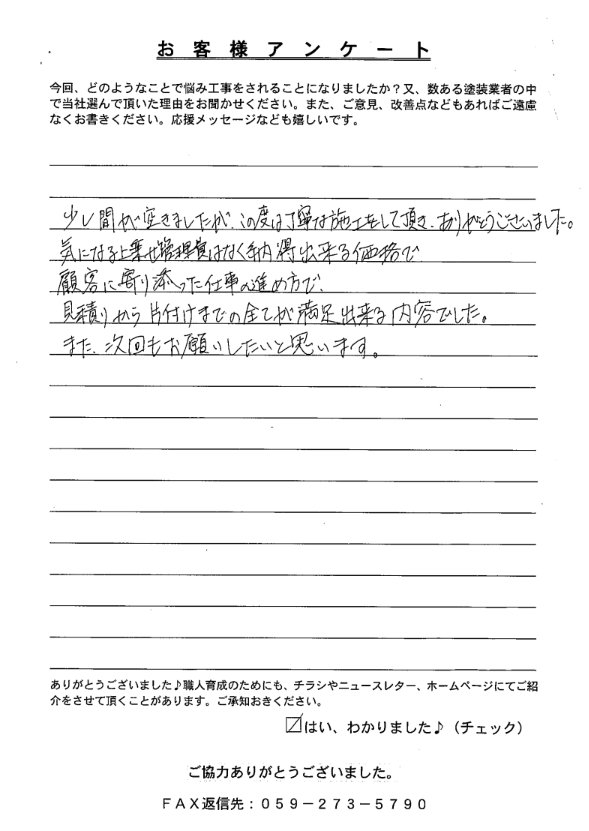 お客様アンケート
今回、どのようなことで悩み工事をされることになりましたか?又、数ある塗装業者の中
で当社選んで頂いた理由をお聞かせください。また、ご意見、改善点などもあればご遠慮
なくお書きください。応援メッセージなども嬉しいです。
少し間が空きましたが、この度は丁寧な施工をして頂き、ありがとうございました。
気になる上乗せ管理費はなく納得出来る価格で
顧客に寄り添った仕事の進め方で、
見積りから片付けまでの全てが満足出来る内容でした。
また、次回もお願いしたいと思います。
ありがとうございました♪職人育成のためにも、チラシやニュースレター、ホームページにてご紹
介をさせて頂くことがあります。ご承知おきください。
☑はい、わかりました♪(チェック)
ご協力ありがとうございました。
FAX返信先:059-273-5790